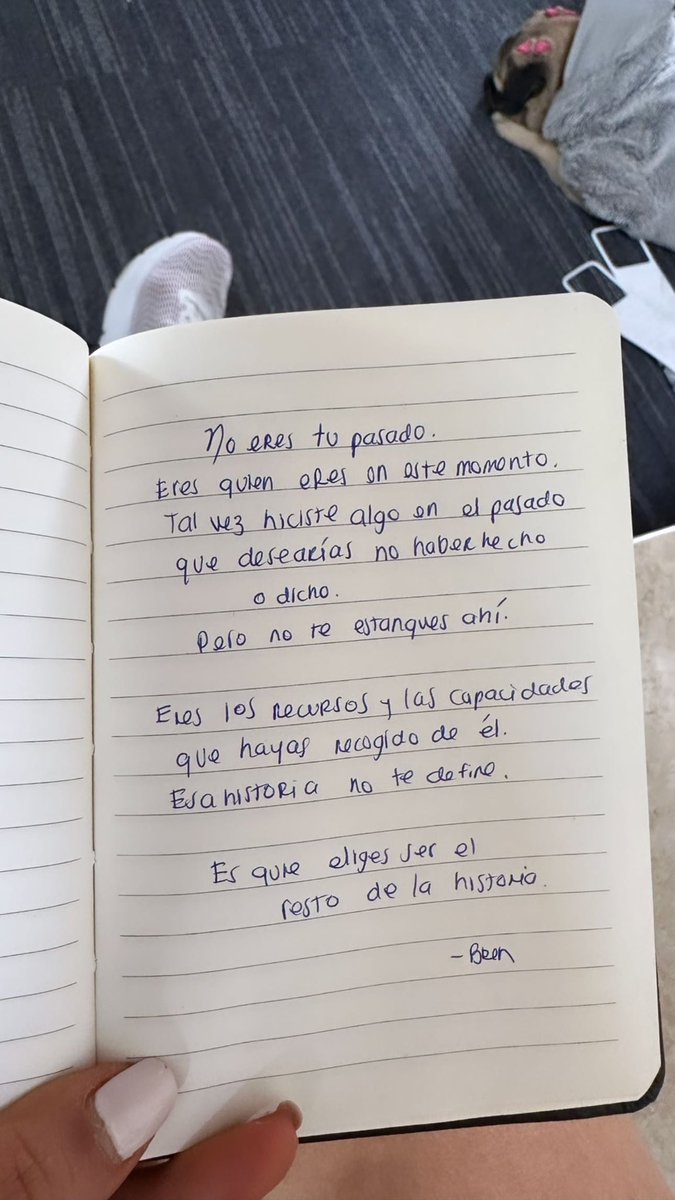 No eres tu pasado.
Eres quien eres en este momento.
Tal vez hiciste algo en el pasado
que desearías no haber hecho
o dicho.
Pero no te estanques ahí.
Eres los recursos y las capacidades
que hayas recogido de él.
Esa historia no te define.
Es quien eliges ser el
resto de la historia.
- Bren